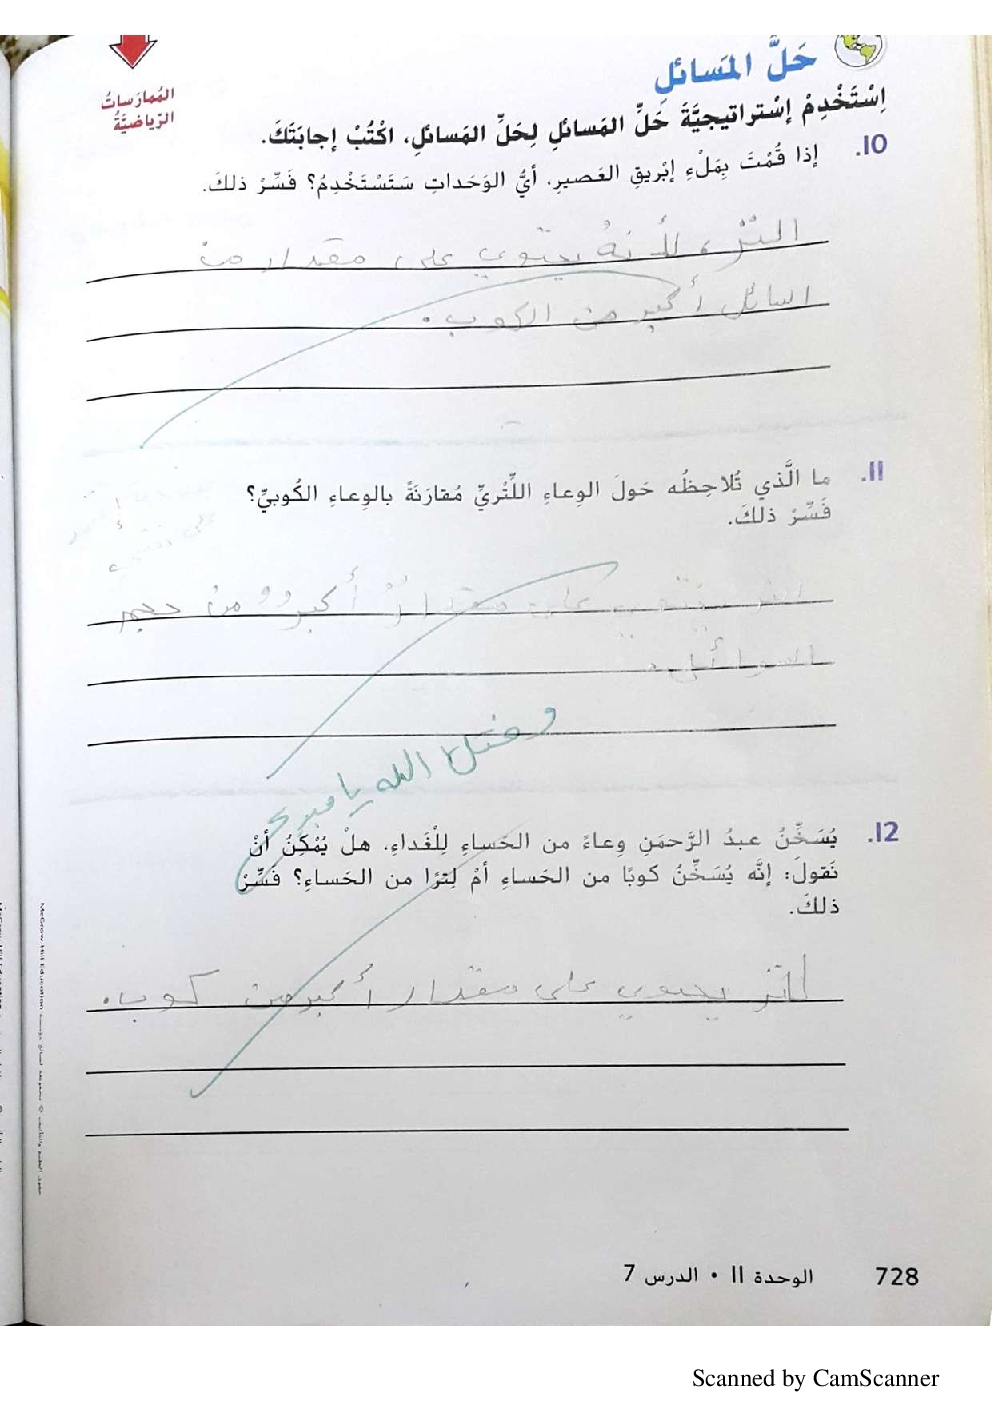 حَلَّ المَسائلِ
المُمارَساتُ
الرّياضيَّةُ
اِسْتَخْدِمْ إِسْتراتيجيَّةَ حَلِّ المَسائلِ لِحَلِّ المَسائلِ. اكْتُبْ إجابَتَكَ.
10. إذا قُمْتَ بِمَلْءِ إبْريقِ العَصيرِ. أيُّ الوَحَداتِ سَتَسْتَخْدِمُ؟ فَسِّرْ ذلكَ.
التر، لأنه يحتوي على مقدار من
السائل أكبر من الكوب.
11. ما الَّذي تُلاحِظُه حَولَ الوِعاءِ اللِّتْريِّ مُقارَنَةً بالوِعاءِ الكُوبيِّ؟
فَسِّرْ ذلكَ.
على مقدار أكبر من حجم
السوائل.
الله يا
12. يُسَخِّنُ عبدُ الرَّحمَنِ وِعاءً من الحَساءِ لِلْغَداءِ. هلْ يُمْكِنُ أنْ
نَقولَ: إنَّه يُسَخِّنُ كوبًا من الحَساءِ أمْ لِترًا من الحَساءِ؟ فَسِّرْ
ذلكَ.
لتر يحتوي على مقدار أكبر من كوب.
728 الوحدة 11 • الدرس 7
Scanned by CamScanner